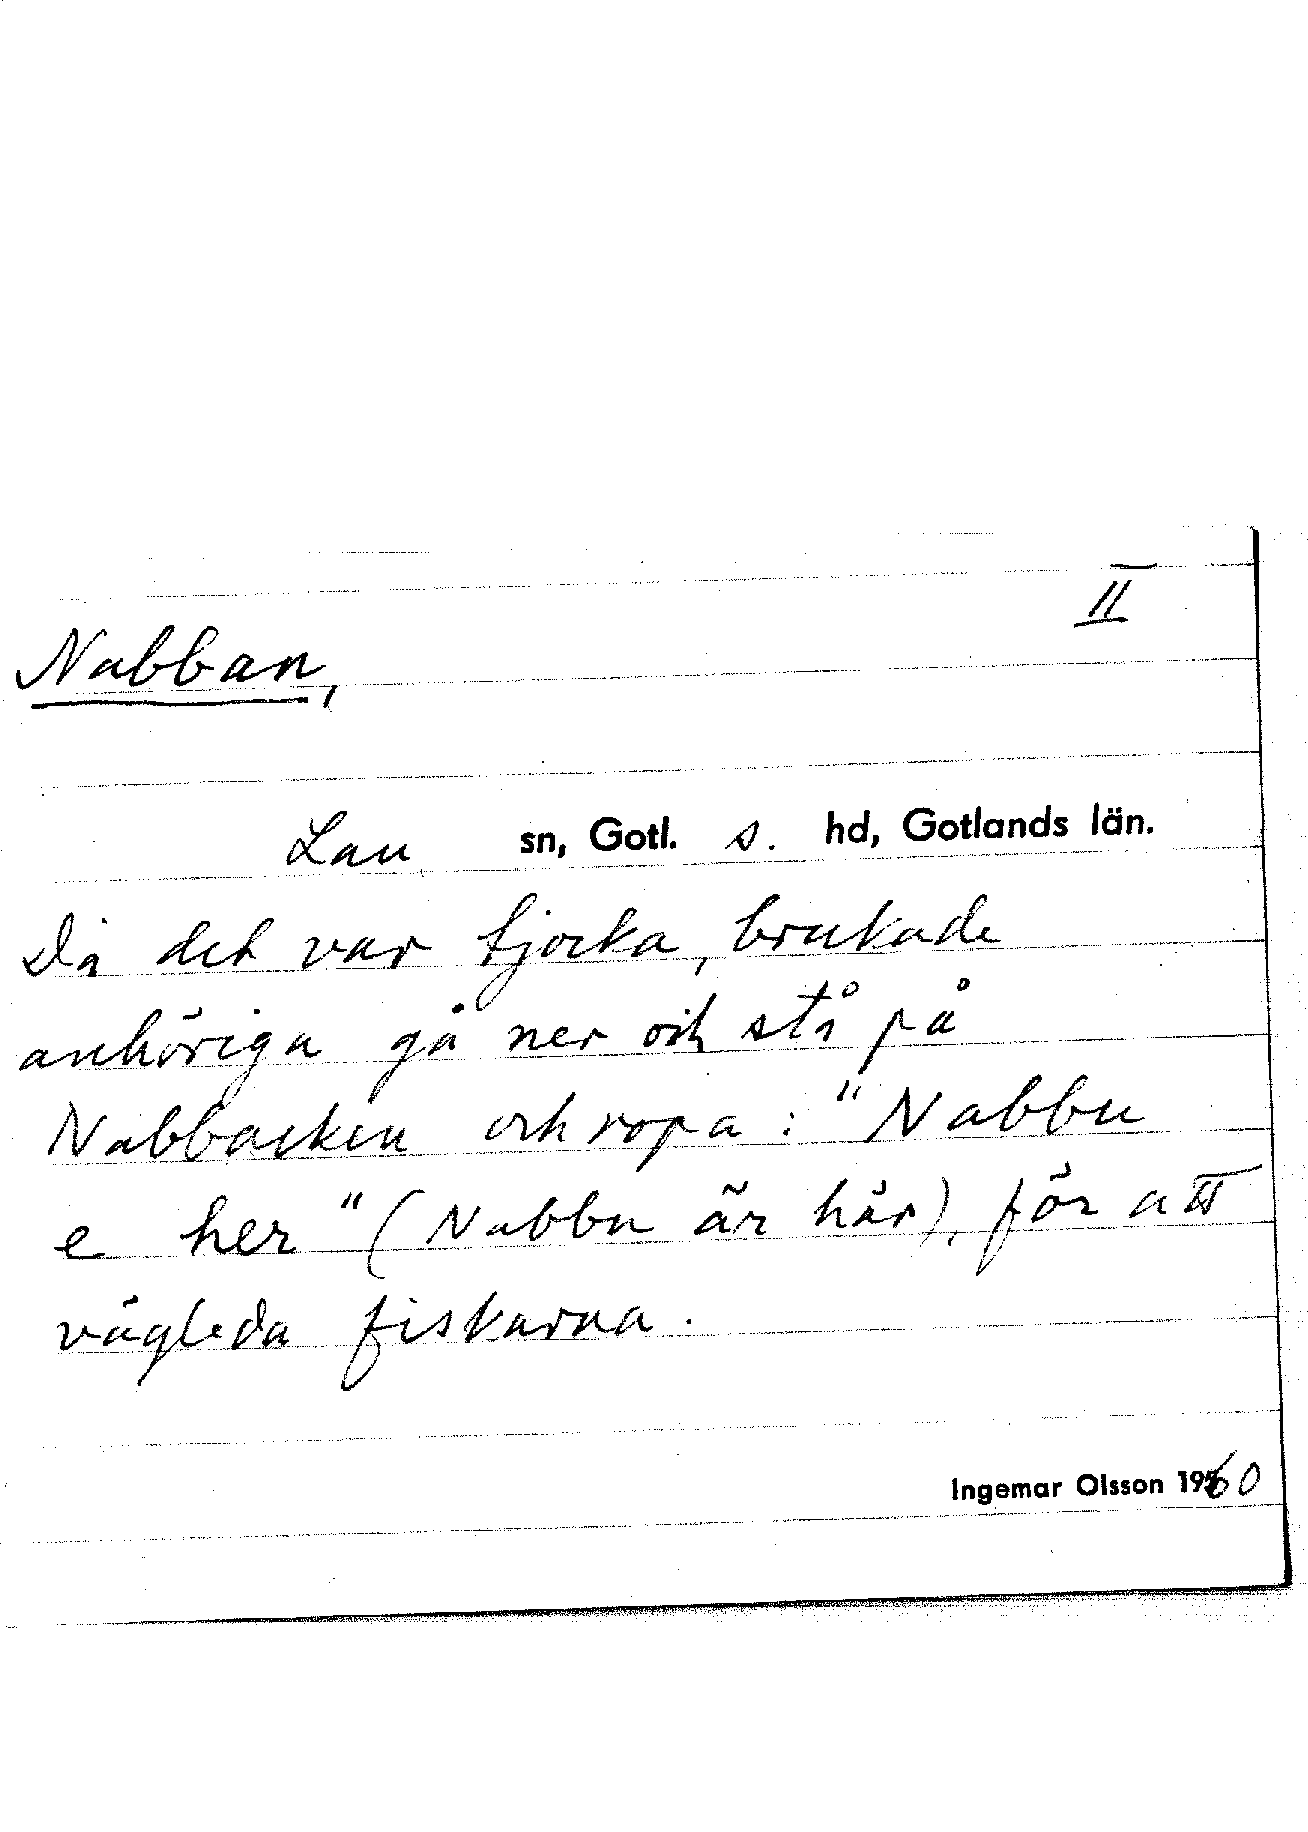 II
Nabban,
Lau sn, Gotl. s. hd, Gotlands län.
Då det var tjocka, brukade
anhöriga gå ner och stå på
Nabbacken och ropa: "Nabbu
e her" (Nabbu är här), för att
vägleda fiskarna.
Ingemar Olsson 1960